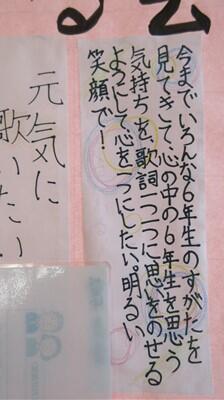 今までいろんな6年生のすがたを
見てきて、心の中の6年生を思う
気持ちを、歌詞一つ一つに思いをのせる
ようにして心を一つにしたい。明るい
笑顔で！
元気に
歌いたい